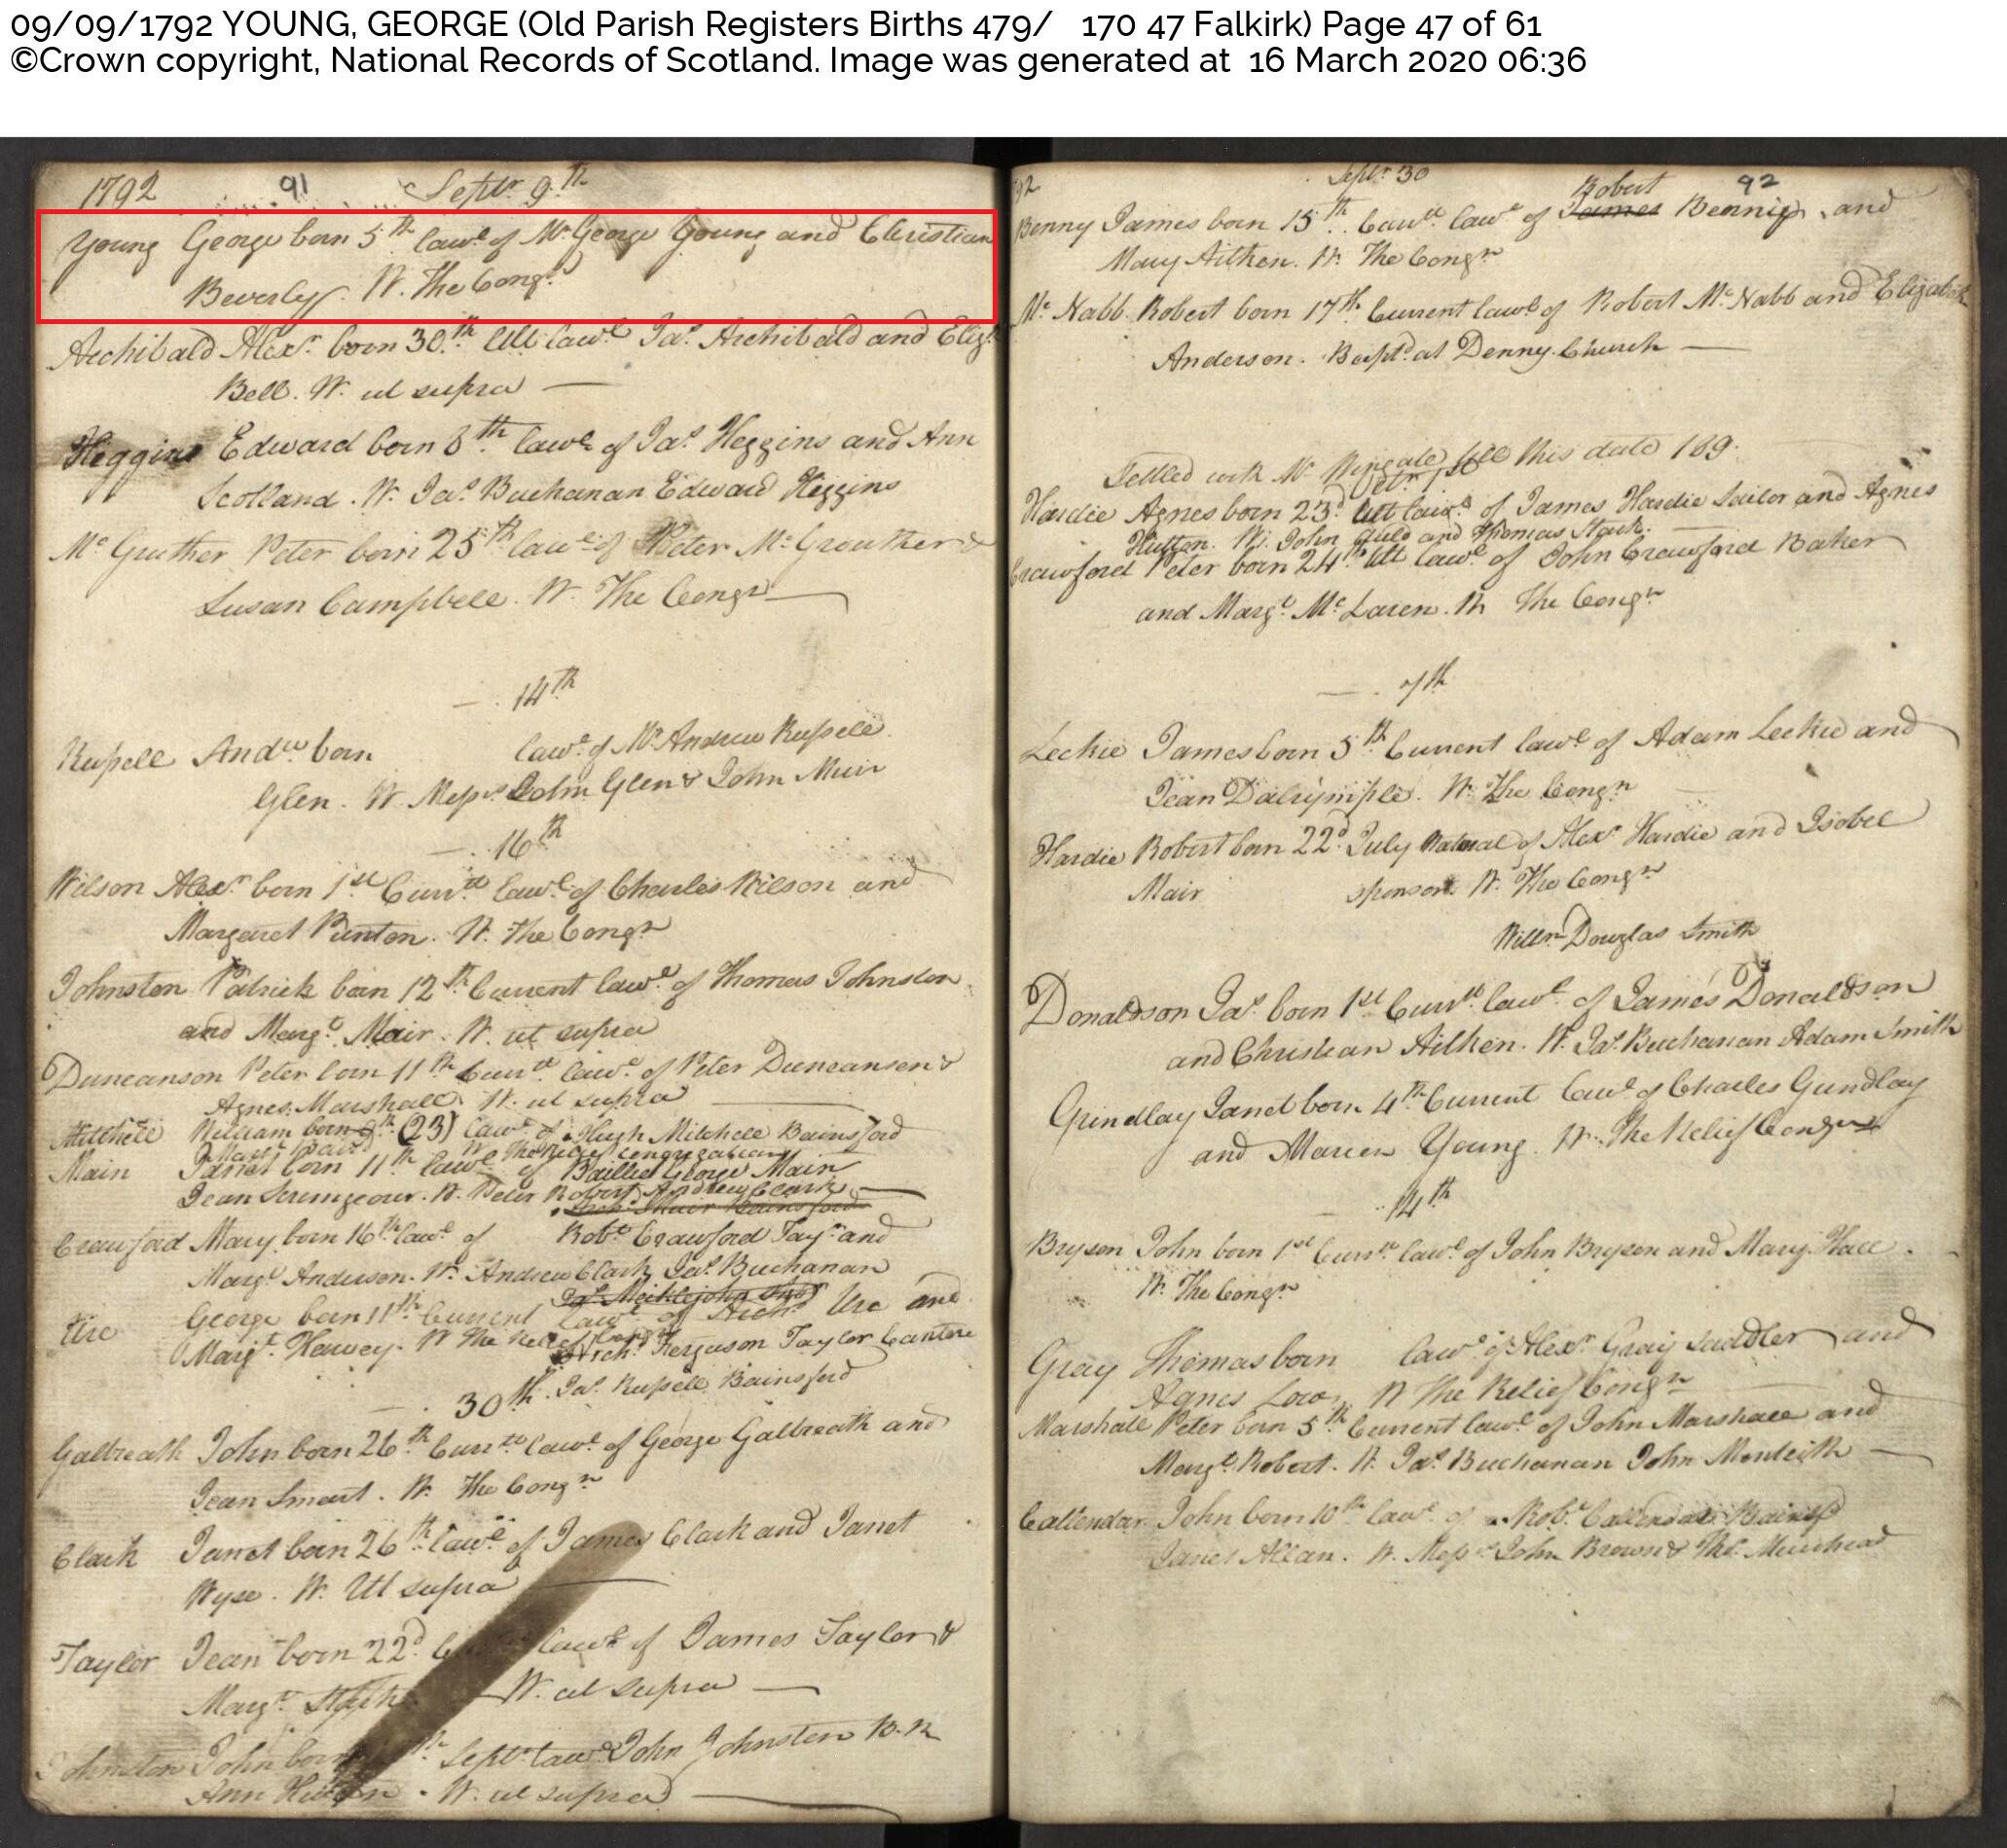 09/09/1792 YOUNG, GEORGE (Old Parish Registers Births 479/ 170 47 Falkirk) Page 47 of 61
©Crown copyright, National Records of Scotland. Image was generated at 16 March 2020 06:36
1792 91 Septr 9th
Young George born 5th lawl of Mr George Young and Christian
Beverly. W. The Congn
Archibald Alexr born 30th Ult lawl Jas Archibald and Eliz
Bell. W. ut supra
Higgins Edward born 8th lawl of Jas Heggins and Ann
Scotland. W. Jas Buchanan Edward Higgins
Mc Gruther Peter born 25th lawl of Peter Mc Grouther &
Susan Campbell. W. The Congn
14th
Russell Andw born lawl of Mr Andrew Russell
Glen. W. Messrs John Glen & John Muir
16th
Wilson Alexr born 1st Currt lawl of Charles Wilson and
Margaret Punton. W. The Congn
Johnston Patrick born 12th Current lawl of Thomas Johnston
and Margt Mair. W. ut supra
Duncanson Peter born 11th Currt lawl of Peter Duncanson &
Agnes Marshall. W. ut supra
Mitchell William born (23) lawl of Hugh Mitchell Bainsford
W The Relief Congregation
Main Janet born 11th lawl of Baillie George Main
Jean Scrimgeour. W. Peter Robert Andrew Clark
Crawford Mary born 16th lawl of Robt Crawford Taylr and
Margt Anderson. W. Andrew Clark Jas Buchanan
Jas Meiklejohn
Ure George born 11th Current lawl of Archd Ure and
Margt Harvey. W The Relief Congn Archd Ferguson Taylor
30th Jas Russell Bainsford
Galbreath John born 26th Currt lawl of George Galbreath and
Jean Smart. W. The Congn
Clark Janet born 26th lawl of James Clark and Janet
Wyse. W. Ut supra
Taylor Jean born 22d lawl of James Taylor &
Margt W. ut supra
Johnston John born Septr lawl John Johnston
Ann W. ut supra
92 Septr 30 Robert 92
Benny James born 15th Currt lawl of James Bennie and
Mary Aitken. W. The Congn
Mc Nabb Robert born 17th Current lawl of Robert Mc Nabb and Elizabeth
Anderson. Baptd at Denny Church
Settled with Mr till this date 169
Octr 1st
Hardie Agnes born 23d Ult lawl of James Hardie Sailor and Agnes
Hutton. W. John Auld and Thomas Stark
Crawford Peter born 24th Ult lawl of John Crawford Baker
and Margt Mc Laren. W The Congn
7th
Leckie James born 5th Current lawl of Adam Leckie and
Jean Dalrymple. W. The Congn
Hardie Robert born 22d July Natural of Alexr Hardie and Isobel
Mair sponsor. W. The Congn
Willm Douglas Smith
Donaldson Jas born 1st Currt lawl of James Donaldson
and Christian Aitken. W. Jas Buchanan Adam Smith
Grindlay Janet born 4th Current lawl of Charles Grindlay
and Marion Young. W. The Relief Congn
14th
Bryson John born 1st Currt lawl of John Bryson and Mary Hall.
W. The Congn
Gray Thomas born lawl of Alexr Gray Saddler and
Agnes Low. W The Relief Congn
Marshall Peter born 5th Current lawl of John Marshall and
Margt Robert. W. Jas Buchanan John Monteith
Callendar John born 10th lawl of Robt Callendar Bainsfd
Janet Allan. W. Messrs John Brown & Thos Muirhead